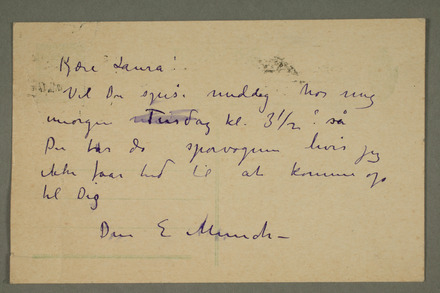 Kjære Laura!
Vil Du spise middag hos mig
imorgen Tirsdag kl. 3 1/2? så
Du tar da sporvognen hvis jeg
ikke faar tid til at komme op
til Dig
Din E Munch